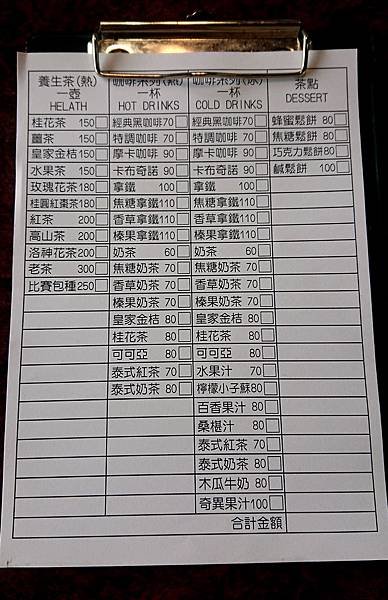 養生茶(熱)
一壺
HELATH
咖啡系列(熱)
一杯
HOT DRINKS
咖啡系列(冰)
一杯
COLD DRINKS
茶點
DESSERT
桂花茶 150 經典黑咖啡70 經典黑咖啡70 蜂蜜鬆餅 80
薑茶 150 特調咖啡 70 特調咖啡 70 焦糖鬆餅 80
皇家金桔150 摩卡咖啡 90 摩卡咖啡 90 巧克力鬆餅 80
水果茶 150 卡布奇諾 90 卡布奇諾 90 鹹鬆餅 100
玫瑰花茶180 拿鐵 100 拿鐵 100
桂圓紅棗茶180 焦糖拿鐵110 焦糖拿鐵110
紅茶 200 香草拿鐵110 香草拿鐵110
高山茶 200 榛果拿鐵110 榛果拿鐵110
洛神花茶200 奶茶 60 奶茶 60
老茶 300 焦糖奶茶 70 焦糖奶茶 70
比賽包種250 香草奶茶 70 香草奶茶 70
榛果奶茶 70 榛果奶茶 70
皇家金桔 80 皇家金桔 80
桂花茶 80 桂花茶 80
可可亞 80 可可亞 80
泰式紅茶 70 水果汁 70
泰式奶茶 80 檸檬小子蘇80
百香果汁 80
桑椹汁 80
泰式紅茶 70
泰式奶茶 80
木瓜牛奶 80
奇異果汁100
合計金額